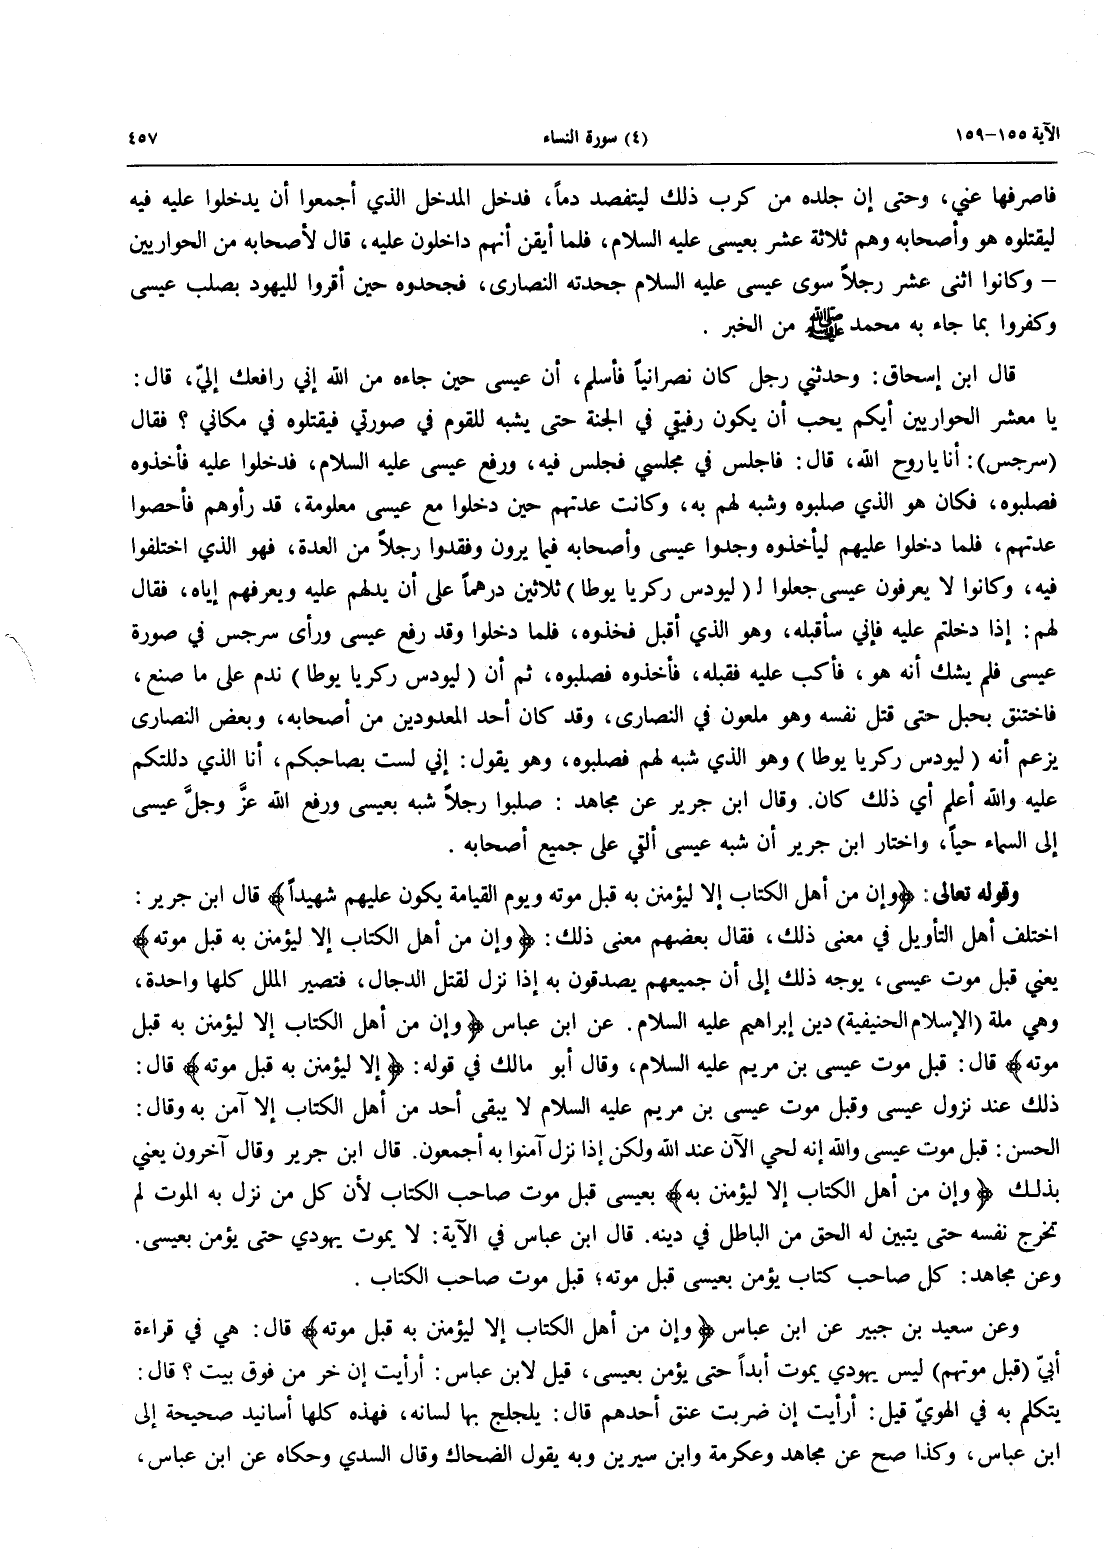 الآية ١٥٥-١٥٩ (٤) سورة النساء ٤٥٧
فاصرفها عني، وحتى إن جلده من كرب ذلك ليتفصد دماً، فدخل المدخل الذي أجمعوا أن يدخلوا عليه فيه
ليقتلوه هو وأصحابه وهم ثلاثة عشر بعيسى عليه السلام، فلما أيقن أنهم داخلون عليه، قال لأصحابه من الحواريين
– وكانوا اثنى عشر رجلاً سوى عيسى عليه السلام جحدته النصارى، فجحدوه حين أقروا لليهود بصلب عيسى
وكفروا بما جاء به محمد ﷺ من الخبر .
قال ابن إسحاق: وحدثني رجل كان نصرانياً فأسلم، أن عيسى حين جاءه من الله إني رافعك إليّ، قال:
يا معشر الحواريين أيكم يحب أن يكون رفيقي في الجنة حتى يشبه للقوم في صورتي فيقتلوه في مكاني ؟ فقال
(سرجس): أنا يا روح الله، قال: فاجلس في مجلسي فجلس فيه، ورفع عيسى عليه السلام، فدخلوا عليه فأخذوه
فصلبوه، فكان هو الذي صلبوه وشبه لهم به، وكانت عدتهم حين دخلوا مع عيسى معلومة، قد رأوهم فأحصوا
عدتهم، فلما دخلوا عليهم ليأخذوه وجدوا عيسى وأصحابه فيما يرون وفقدوا رجلاً من العدة، فهو الذي اختلفوا
فيه، وكانوا لا يعرفون عيسى جعلوا لـ ( ليودس ركريا يوطا ) ثلاثين درهماً على أن يدلهم عليه ويعرفهم إياه، فقال
لهم: إذا دخلتم عليه فإني سأقبله، وهو الذي أقبل فخذوه، فلما دخلوا وقد رفع عيسى ورأى سرجس في صورة
عيسى فلم يشك أنه هو، فأكب عليه فقبله، فأخذوه فصلبوه، ثم أن ( ليودس ركريا يوطا ) ندم على ما صنع،
فاختنق بحبل حتى قتل نفسه وهو ملعون في النصارى، وقد كان أحد المعدودين من أصحابه، وبعض النصارى
يزعم أنه ( ليودس ركريا يوطا ) وهو الذي شبه لهم فصلبوه، وهو يقول: إني لست بصاحبكم، أنا الذي دللتكم
عليه والله أعلم أي ذلك كان. وقال ابن جرير عن مجاهد : صلبوا رجلاً شبه بعيسى ورفع الله عزَّ وجلَّ عيسى
إلى السماء حياً، واختار ابن جرير أن شبه عيسى ألقي على جميع أصحابه .
وقوله تعالى: ﴿وإن من أهل الكتاب إلا ليؤمنن به قبل موته ويوم القيامة يكون عليهم شهيداً﴾ قال ابن جرير :
اختلف أهل التأويل في معنى ذلك، فقال بعضهم معنى ذلك: ﴿ وإن من أهل الكتاب إلا ليؤمنن به قبل موته﴾
يعني قبل موت عيسى، يوجه ذلك إلى أن جميعهم يصدقون به إذا نزل لقتل الدجال، فتصير الملل كلها واحدة،
وهي ملة (الإسلام الحنيفية) دين إبراهيم عليه السلام. عن ابن عباس ﴿ وإن من أهل الكتاب إلا ليؤمنن به قبل
موته﴾ قال: قبل موت عيسى بن مريم عليه السلام، وقال أبو مالك في قوله: ﴿ إلا ليؤمنن به قبل موته﴾ قال:
ذلك عند نزول عيسى وقبل موت عيسى بن مريم عليه السلام لا يبقى أحد من أهل الكتاب إلا آمن به وقال:
الحسن: قبل موت عيسى والله إنه لحي الآن عند الله ولكن إذا نزل آمنوا به أجمعون. قال ابن جرير وقال آخرون يعني
بذلك ﴿ وإن من أهل الكتاب إلا ليؤمنن به﴾ بعيسى قبل موت صاحب الكتاب لأن كل من نزل به الموت لم
تخرج نفسه حتى يتبين له الحق من الباطل في دينه. قال ابن عباس في الآية: لا يموت يهودي حتى يؤمن بعيسى.
وعن مجاهد: كل صاحب كتاب يؤمن بعيسى قبل موته؛ قبل موت صاحب الكتاب .
وعن سعيد بن جبير عن ابن عباس ﴿ وإن من أهل الكتاب إلا ليؤمنن به قبل موته﴾ قال: هي في قراءة
أبيّ (قبل موتهم) ليس يهودي يموت أبداً حتى يؤمن بعيسى، قيل لابن عباس: أرأيت إن خر من فوق بيت ؟ قال:
يتكلم به في الهويّ قيل: أرأيت إن ضربت عنق أحدهم قال: يلجلج بها لسانه، فهذه كلها أسانيد صحيحة إلى
ابن عباس، وكذا صح عن مجاهد وعكرمة وابن سيرين وبه يقول الضحاك وقال السدي وحكاه عن ابن عباس،